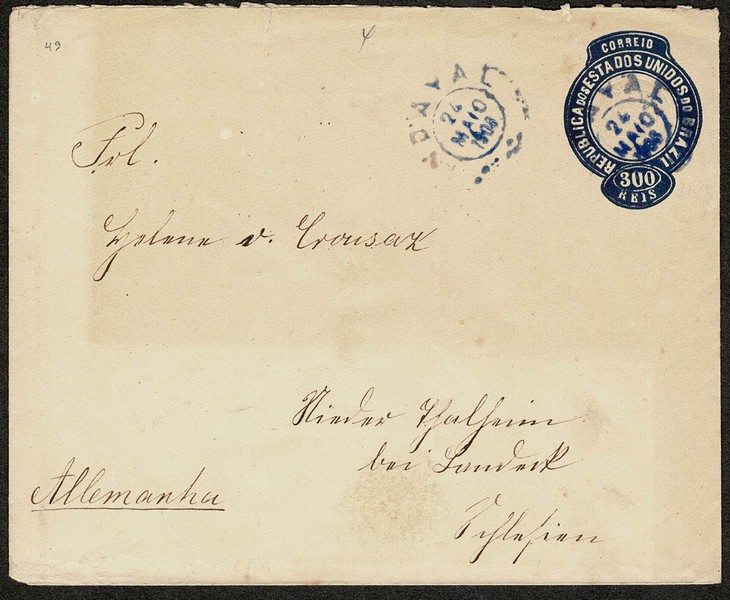 49
4
CORREIO
REPUBLICA DOS ESTADOS UNIDOS DO BRAZIL
300
REIS
NDAYAL
24
MAIO
1908
NYAL
24
MAIO
1908
Frl.
Helene v. Crousaz
Nieder Thalheim
bei Landeck
Schlesien
Allemanha